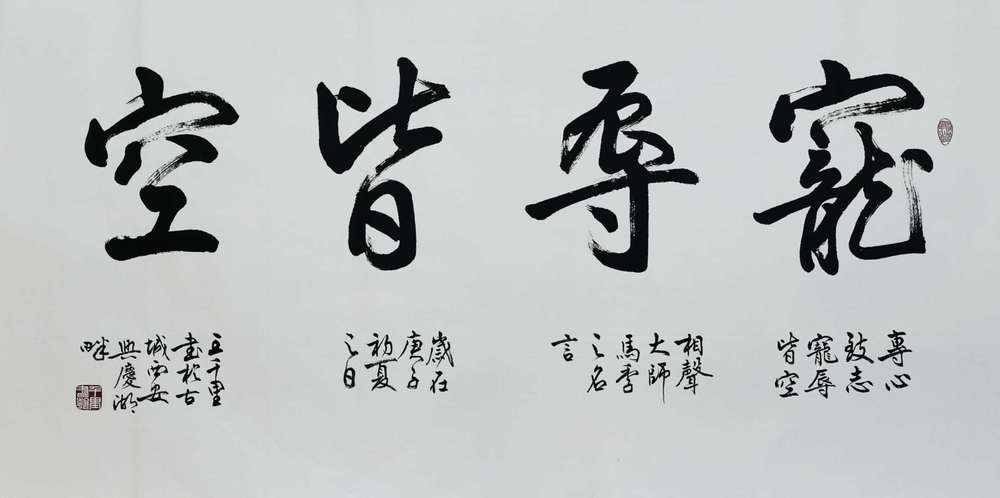 寵辱皆空
專心
致志
寵辱
皆空
相聲
大師
馬季
之名
言
歲在
庚子
初夏
之日
王千里
書於古
城西安
興慶湖
畔